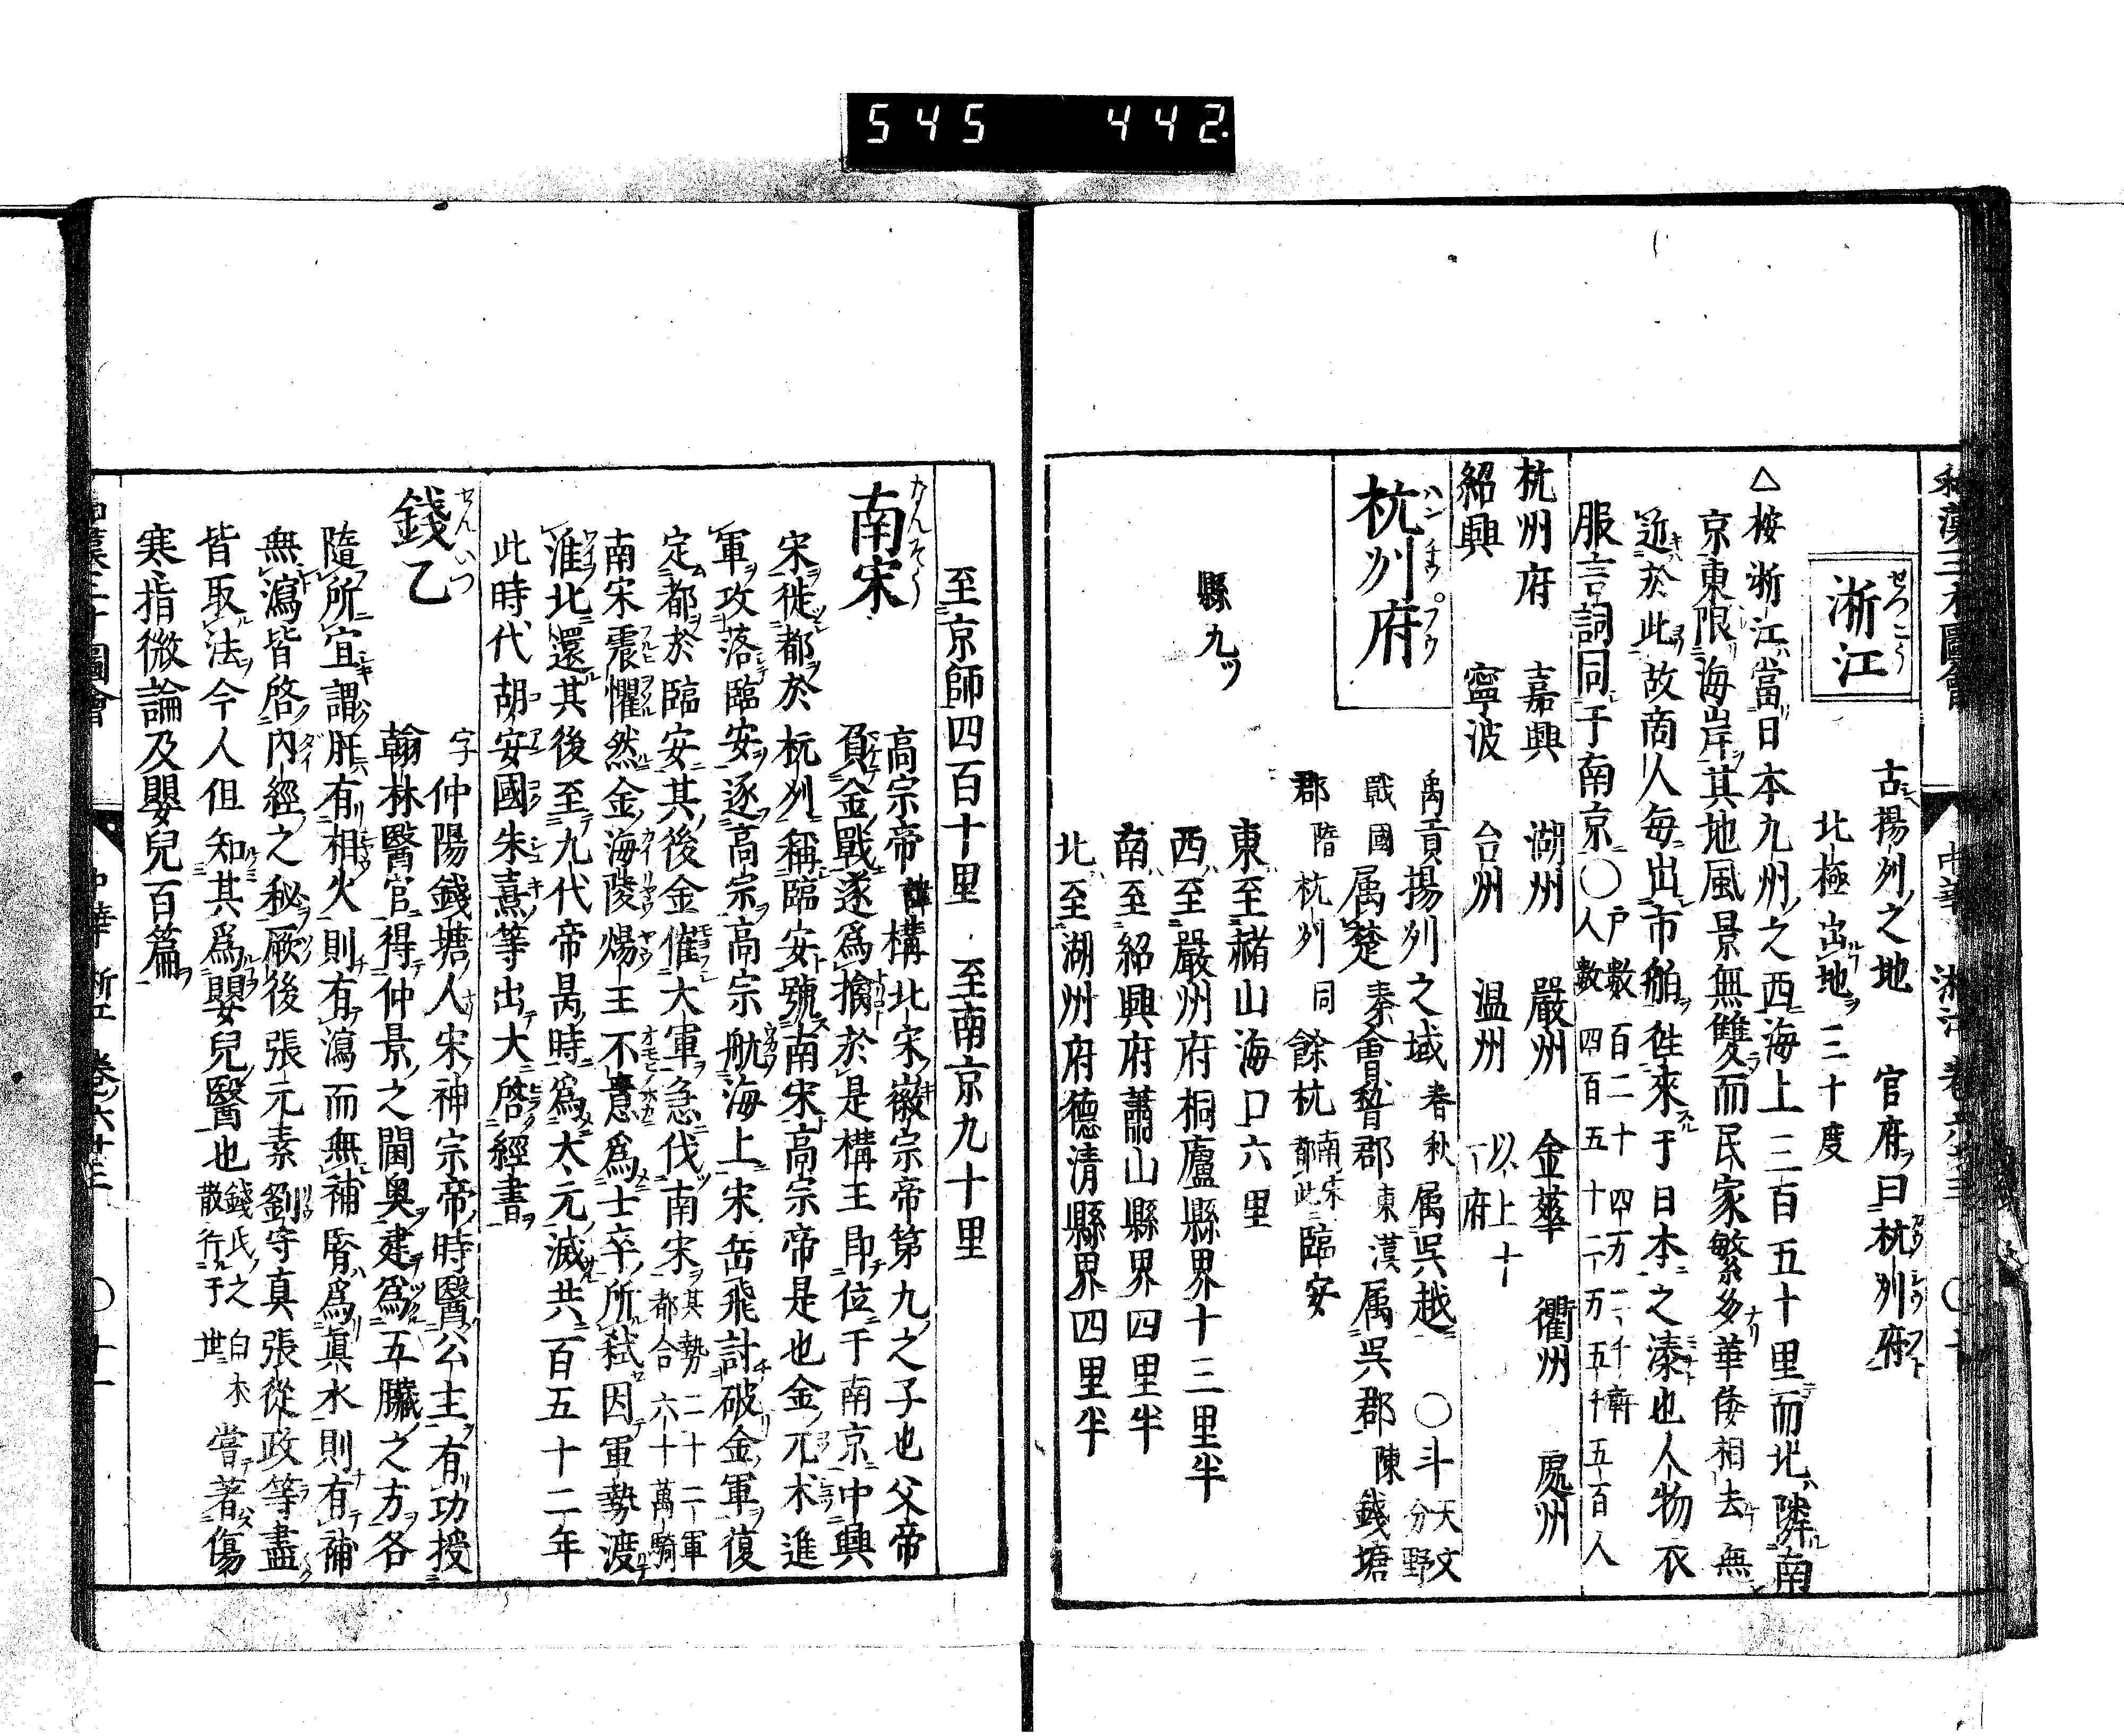 545 442
和漢三才圖會 中華 淅江 卷六十三 〇十
淅江
せつこう
古揚刕之地 官府曰杭刕府
北極出地三十度
△桉淅江當日本九州之西海上三百五十里而北隣南
京東限海岸其地風景無雙而民家繁多華倭相去無
近於此故商人毎出市舶徃來于日本之湊也人物衣
服言詞同于南京〇戸數百二十四万二千軒
人數四百五十二万五千五百人
杭州府 嘉興 湖州 嚴州 金華 衢州 處州
紹興 寧波 台州 温州 以上十一府
杭州府
ハンチウフウ
禹貢揚刕之域春秋属呉越 〇斗天文分野
戰國属楚秦會稽郡東漢属呉郡陳錢塘
郡隋杭刕同餘杭南宋都此臨安
縣九ツ
東至赭山海口六里
西至嚴州府桐廬縣界十三里半
南至紹興府蕭山縣界四里半
北至湖州府德清縣界四里半
至京師四百十里 至南京九十里
南宋
なんそう
高宗帝諱構北宋徽宗帝第九之子也父帝
負金戰遂爲擒於是構王即位于南京中興
宋徙都於杭刕稱臨安號南宋高宗帝是也金兀朮進
軍攻落臨安逐高宗高宗航海上宋岳飛討破金軍復
定都於臨安其後金催大軍急伐南宋其勢二十二軍都合六十萬騎
南宋震懼然金海陵煬王不意爲士卒所弑因軍勢渡
淮北還其後至九代帝昺時爲大元滅共百五十二年
此時代胡安國朱熹等出大啓經書
錢乙
せんいつ
字仲陽錢塘人宋神宗帝時醫公主有功授
翰林醫官得仲景之閫奥建爲五臟之方各
隨所宜謂肝有相火則有瀉而無補腎爲眞水則有補
無瀉皆啓内經之秘厥後張元素劉守真張從政等盡
皆取法今人但知其爲嬰兒醫也錢氏之白朮散行于世嘗著傷
寒指微論及嬰兒百篇
和漢三才圖會 中華 淅江 卷六十三 〇十一